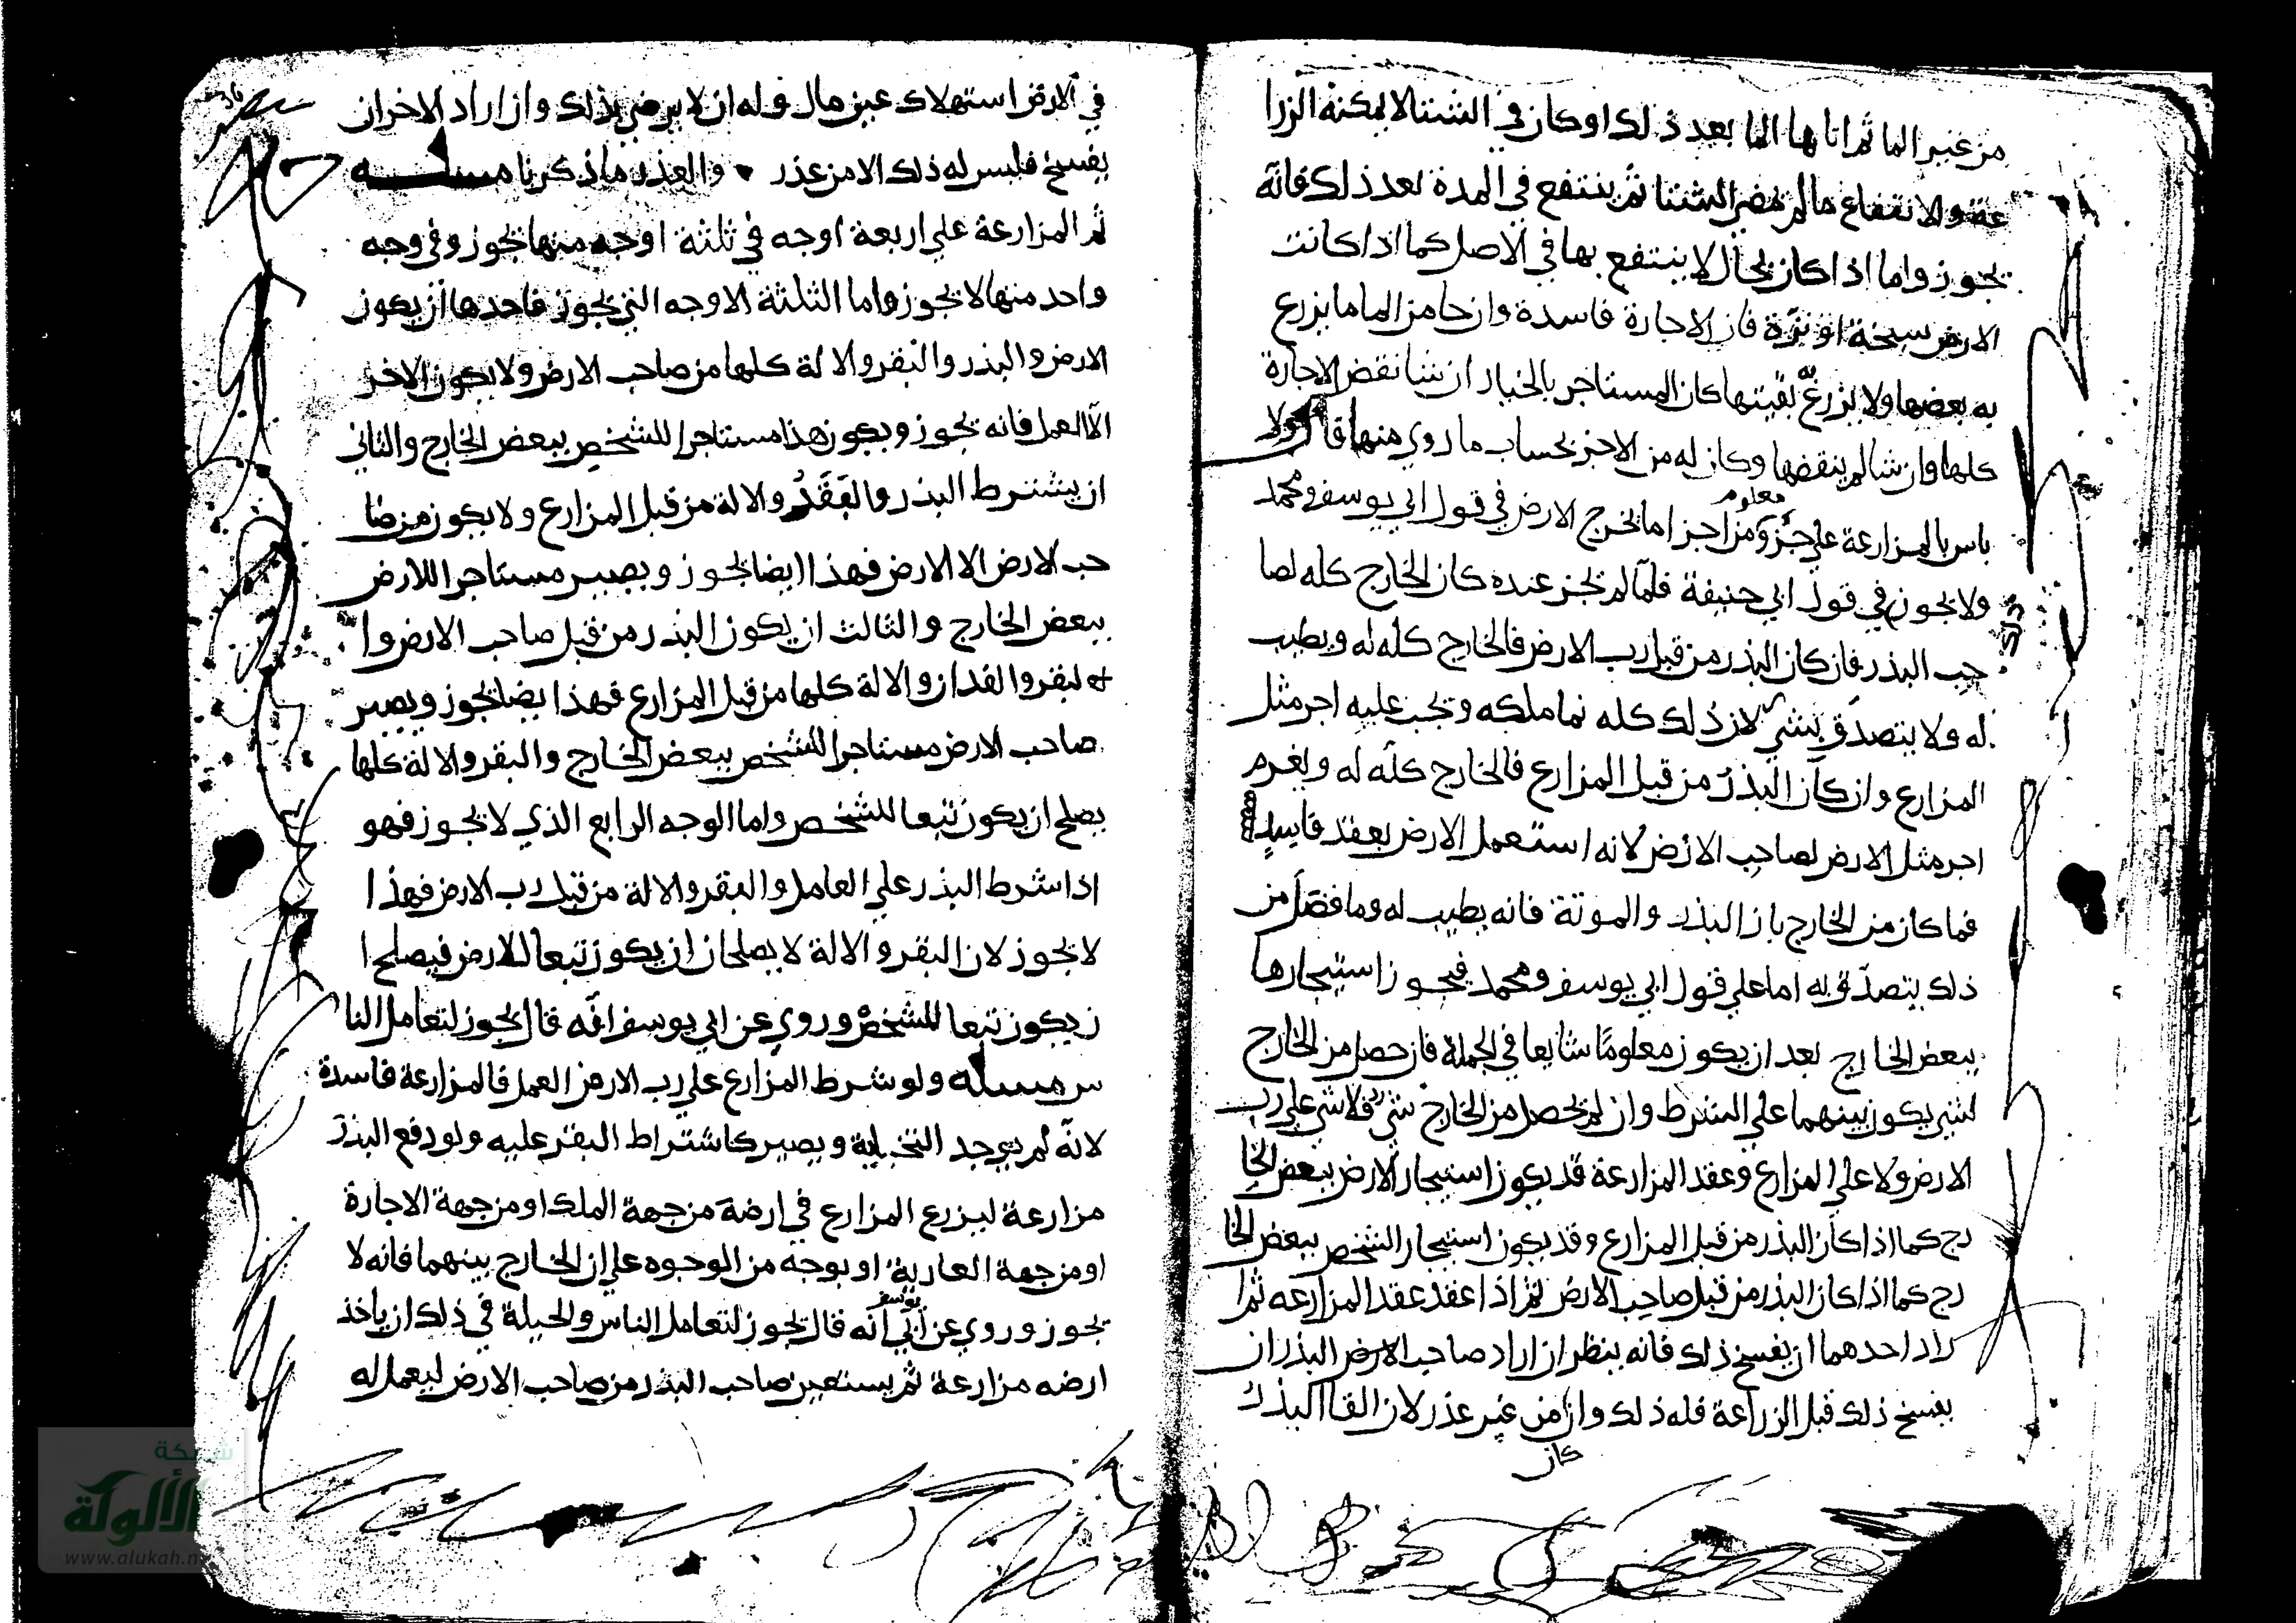 من غير الما ثم اتاها الما بعد ذلك او كان في الشتا لا يمكنه الزرا
عة ولا انتفاع ما لم يمض الشتا ثم ينتفع في المدة بعد ذلك فانه
يجوز واما اذا كان بحال لا ينتفع بها في الاصل كما اذا كانت
الارض سبخة او نزة فان الاجارة فاسدة وان جا من الما ما يزرع
به بعضها ولا يزرع بقيتها كان المستاجر بالخيار ان شا نقض الاجارة
كلها وان شا لم ينقضها وكان له من الاجر بحساب ما روي منها قال ولا
باس بالمزارعة علي جزو معلوم من اجزا ما تخرج الارض في قول ابي يوسف ومحمد
ولا يجوز في قول ابي حنيفة فلما لم يجز عنده كان الخارج كله لصا
حب البذر فان كان البذر من قبل رب الارض فالخارج كله له ويطيب
له ولا يتصدق بشي لان ذلك كله نما ملكه وتجب عليه اجر مثل
المزارع وان كان البذر من قبل المزارع فالخارج كله له ويغرم
اجر مثل الارض لصاحب الارض لانه استعمل الارض بعقد فاسد
فما كان من الخارج بازا البذر والمونة فانه يطيب له وما فضل من
ذلك يتصدق به اما علي قول ابي يوسف ومحمد فيجوز استيجارها
ببعض الخارج بعد ان يكون معلوما شايعا في الجملة فان حصل من الخارج
شي يكون بينهما علي الشرط وان لم يحصل من الخارج شي فلا شي علي رب
الارض ولا علي المزارع وعقد المزارعة قد يكون استيجار الارض ببعض الخا
رج كما اذا كان البذر من قبل المزارع وقد يكون استيجار الشخص ببعض الخا
رج كما اذا كان البذر من قبل صاحب الارض ثم اذا عقد عقد المزارعه ثم ا
راد احدهما ان يفسخ ذلك فانه ينظر ان اراد صاحب الارض البذر ان
يفسخ ذلك قبل الزراعة فله ذلك وان كان من غير عذر لان القا البذر
في الارض استهلاك عين مال وله ان لا يرضي بذلك وان اراد الاخر ان
يفسخ فليس له ذلك الا من عذر والعذر ما ذكرنا مسله
ثم المزارعة علي اربعة اوجه في ثلثة اوجه منها تجوز وفي وجه
واحد منها لا يجوز واما الثلثة الاوجه التي يجوز فاحدها ان يكون
الارض والبذر والبقر والالة كلها من صاحب الارض ولا يكون الاخر
الا العمل فانه يجوز ويكون هذا مستاجرا للشخص ببعض الخارج والثاني
ان يشترط البذر والبقر والالة من قبل المزارع ولا يكون من صا
حب الارض الا الارض فهذا ايضا يجوز ويصير مستاجرا للارض
ببعض الخارج والثالث ان يكون البذر من قبل صاحب الارض وا
لبقر والفدان والالة كلها من قبل المزارع فهذا ايضا يجوز ويصير
صاحب الارض مستاجرا للشخص ببعض الخارج والبقر والالة كلها
يصلح ان يكون تبعا للشخص واما الوجه الرابع الذي لا يجوز فهو
اذا شرط البذر علي العامل والبقر والالة من قبل رب الارض فهذا
لا يجوز لان البقر والالة لا يصلحان ان يكون تبعا للارض فيصلح ا
ن يكون تبعا للشخص وروي عن ابي يوسف انه قال يجوز لتعامل النا
س مسله ولو شرط المزارع علي رب الارض العمل فالمزارعة فاسدة
لانه لم يوجد التخلية ويصير كاشتراط البقر عليه ولو دفع البذر
مزارعة ليزرع المزارع في ارضه من جهة الملك او من جهة الاجارة
او من جهة العارية او بوجه من الوجوه علي ان الخارج بينهما فانه لا
يجوز وروي عن ابي يوسف انه قال يجوز لتعامل الناس والحيلة في ذلك ان ياخذ
ارضه مزارعة ثم يستعين صاحب البذر من صاحب الارض ليعمل له
شبكة
الألوكة
www.alukah.n